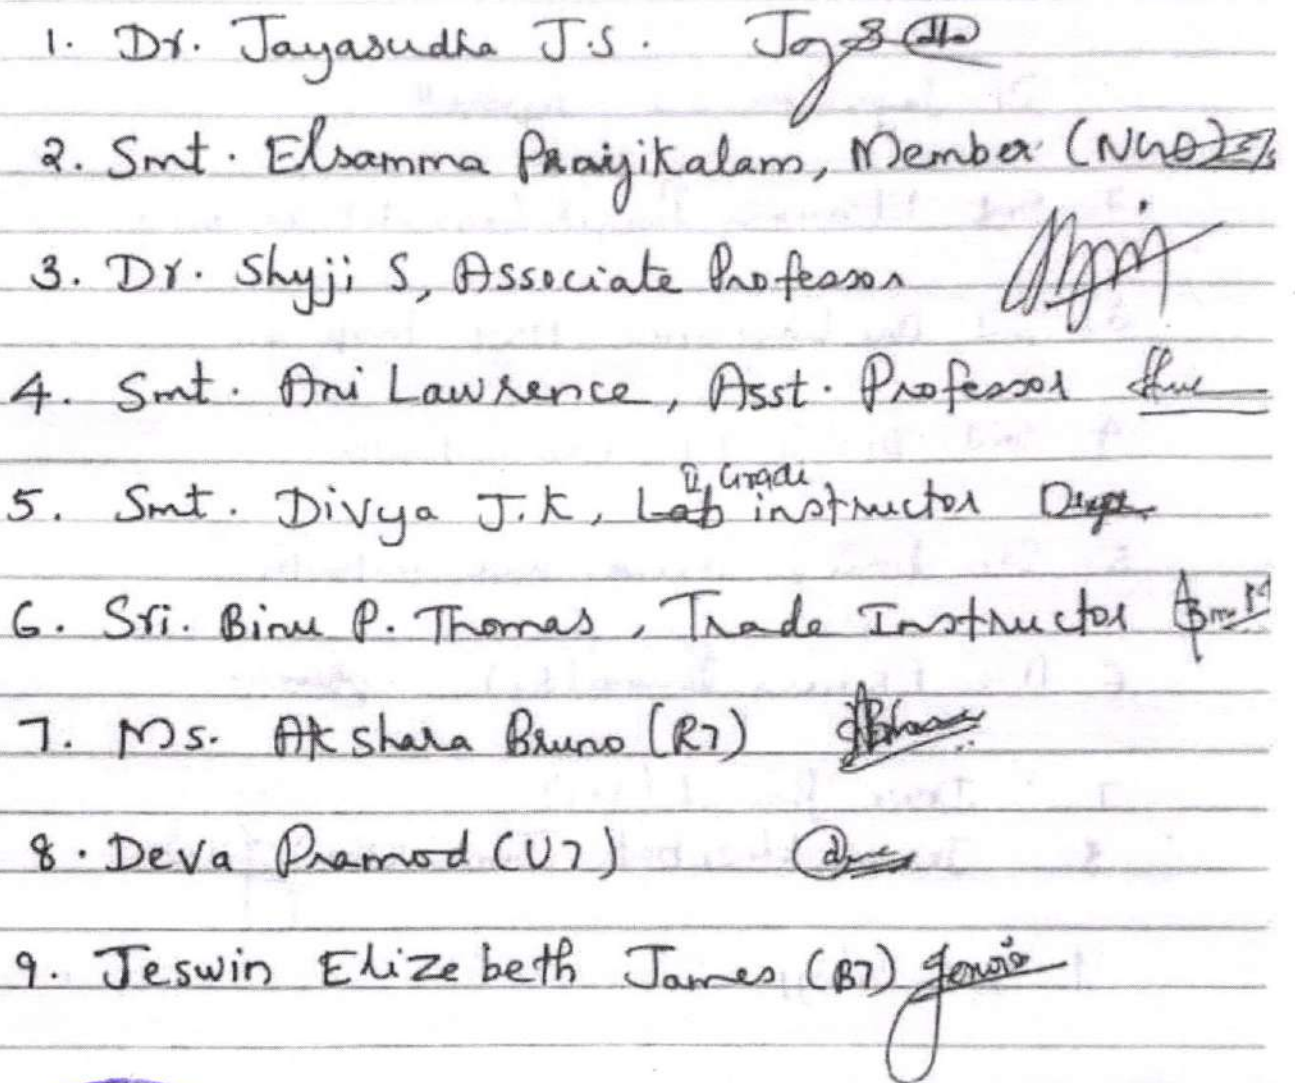 1. Dr. Jayasudha J.S.
2. Smt. Elsamma Prayikalam, Member (NGO)
3. Dr. Shyji S, Associate Professor
4. Smt. Ani Lawrence, Asst. Professor
5. Smt. Divya J.K, Lab II Grade instructor Divya
6. Sri. Binu P. Thomas, Trade Instructor
7. Ms. Akshara Bruno (R7)
8. Deva Pramod (U7)
9. Jeswin Elizebeth James (B7)